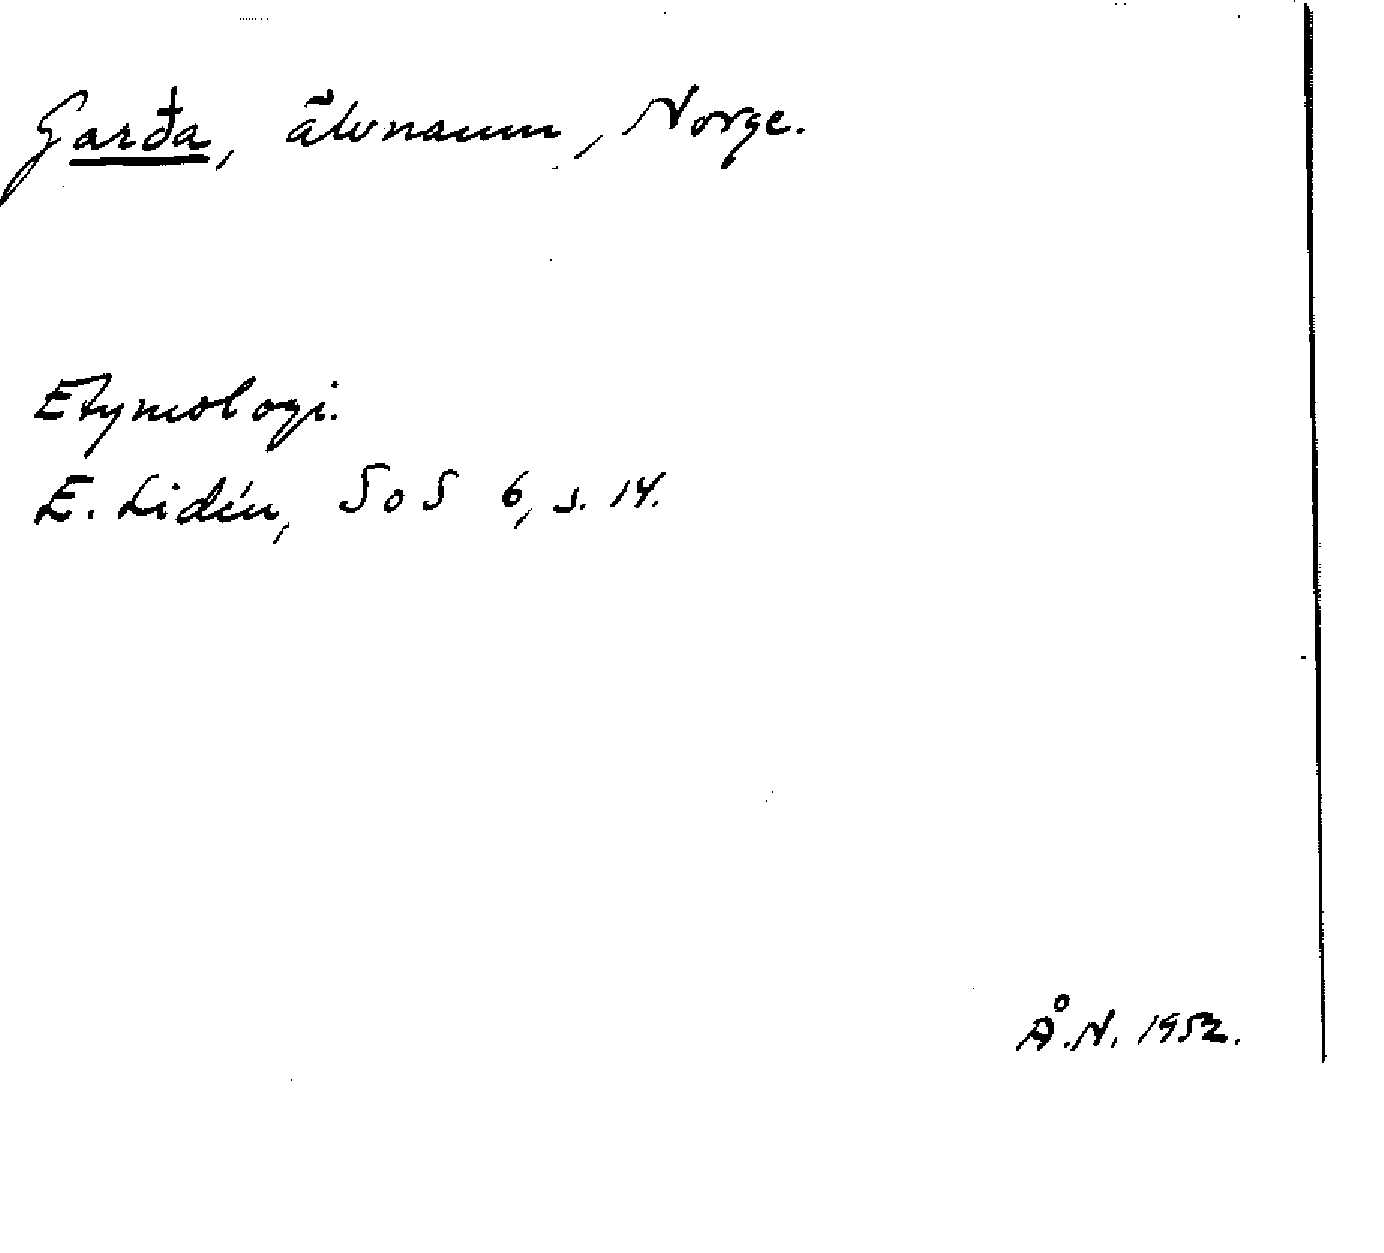 Garða, älvnamn, Norge.
Etymologi.
E. Lidén, SoS 6, s. 14.
Å.N. 1952.